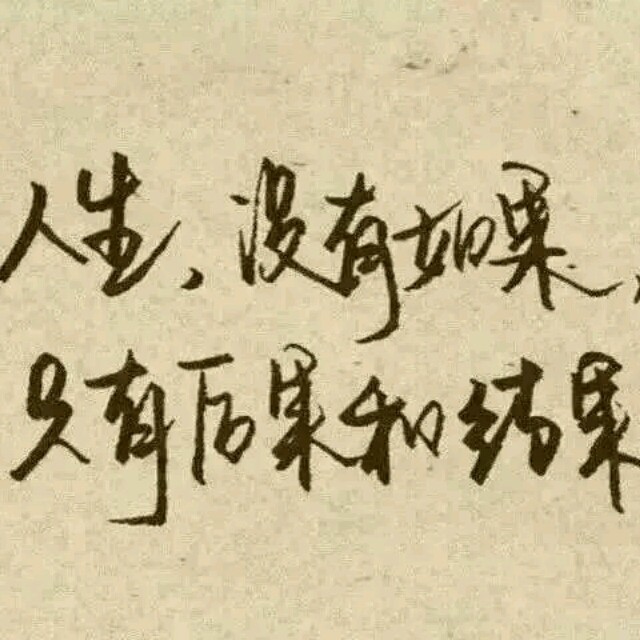 人生、没有如果，
只有后果和结果